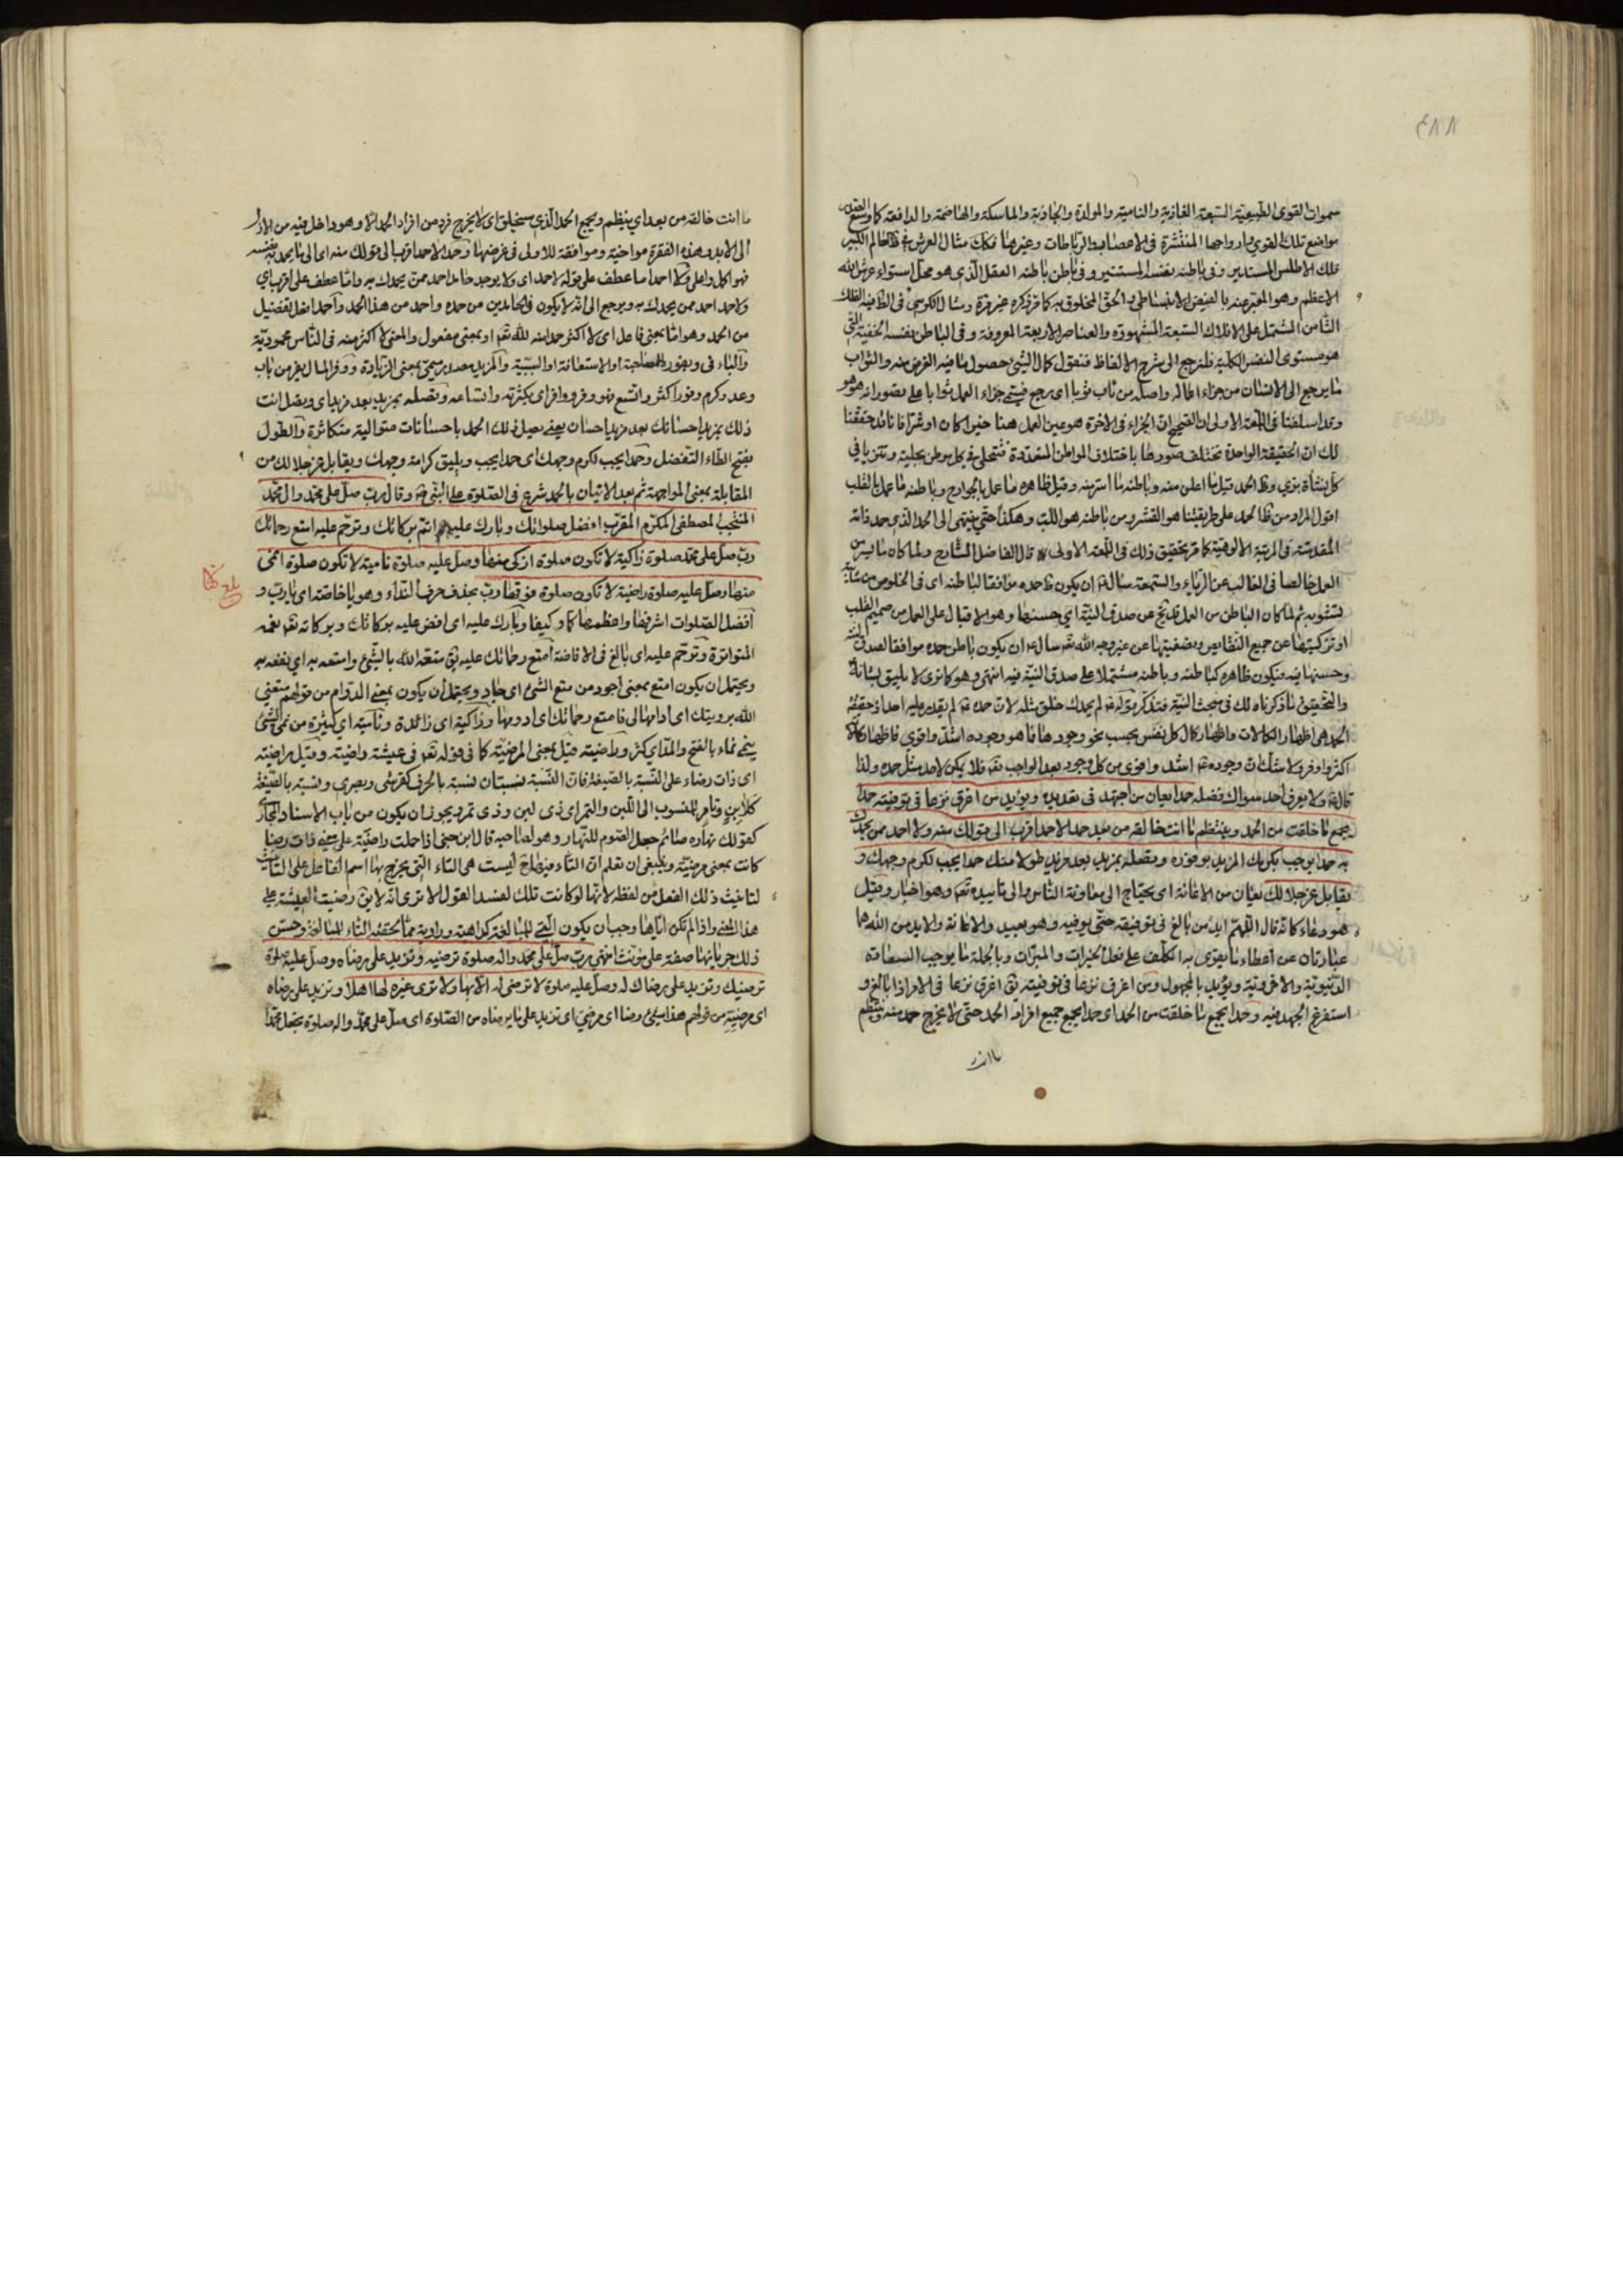 ٤٨٨
سموات القوى الطبيعية السبعة الغاذية والنامية والمولدة والجاذبة والماسكة والهاضمة والدافعة كما وسع
مواضع تلك القوى وارواحها المنتشرة في الاعصاب والرباطات وغيرها فكك مثال العرش في ظ العالم الكبير
فلك الاطلس المستدير وفي باطنه نفسه المستنير وفي باطن باطنه العقل الذي هو محل استواء عرش الله
الاعظم وهو المعبر عنه بالفيض الانبساطي والحق المخلوق به كما مر ذكره غير مرة ومثال الكرسي في الظ فيه الفلك
الثامن المشتمل على الافلاك السبعة المشهودة والعناصر الاربعة المعروفة وفي الباطن نفسه الخفية التي
هو مستوى النفس الكلية فلنرجع الى شرح الالفاظ فنقول كمال الشئ حصول ما فيه الغرض منه والثواب
ما يرجع الى الانسان من جزاء اعماله واصله من ثاب ثوبا اى رجع فيسمى جزاء العمل ثوابا على تصور انه هو هو
وقد اسلفنا في اللمعة الاولى ان الصحيح ان الجزاء في الاخرة هو عين العمل هنا خيرا كان او شرا فانا قد حققنا
لك ان الحقيقة الواحدة تختلف صورها باختلاف المواطن المتعددة فتتجلى في كل موطن بحلية وتتزيا في
كل نشأة بزى وظ الحمد قيل ما اعلن منه وباطنه ما اسر منه وقيل ظاهره ما عمل بالجوارح وباطنه ما عمل بالقلب
اقول المراد من ظ الحمد على طريقتنا هو القشر ومن باطنه هو اللب وهكذا حتى ينتهى الى الحمد الذي حمد ذاته
المقدسة في المرتبة الالوهية كما مر تحقيق ذلك في اللمعة الاولى قال الفاضل الشارح ولما كان ما يسر من
العمل خالصا في الغالب عن الرياء والسمعة سال ان يكون ظ حمده موافقا لباطنه اى في الخلوص من شائبة
تشوبه ثم لما كان الباطن من العمل قد يخ عن صدق النية اي حسنها وهو الاقبال على العمل من صميم القلب
او تزكيتها عن جميع النقايص وتصفيتها عن غير وجه الله تعه سال ان يكون باطن حمده موافقا لصدق النية
وحسنها فيه فيكون ظاهره كباطنه وباطنه مشتملا على صدق النية فيه انتهى وهو كما ترى لا يليق بشانه
والتحقيق ما ذكرناه لك في مبحث النية فتذكر قوله لم يحمدك خلق مثله لان حمده لم يقدر عليه احد اذ حقيقة
الحمد هي اظهار الكمالات واظهار كمال كل نفس بحسب نحو وجودها فما هو وجوده اشد واقوى فاظهاره كماله
اكثر واوفر ولا شك ان وجوده اشد واقوى من كل وجود بعد الواجب تعه فلا يمكن لاحد مثل حمده ولذا
قال ولا يعرف احد سواك فضله حمدا يعان من اجتهد في تعديده ويؤيد من اغرق نزعا في توفيته حمدا
يجمع ما خلقت من الحمد وينتظم ما انت خالقه من بعد حمدا لا احد اقرب الى قولك منه ولا احمد ممن يحمدك
به حمدا يوجب بكرمك المزيد بوفوره وتصله بمزيد بعد مزيد طولا منك حمدا يجب لكرم وجهك و
يقابل عز جلالك يعان من الاعانة اى يحتاج الى معاونة الناس والى تاييده تعه وهو اخبار وقيل
هو دعاء كانه قال اللهم ايد من بالغ في توفيته حتى يوفيه وهو بعيد والاعانة والايد من الله هما
عبارتان عن اعطاء ما يقوى به المكلف على فعل الخيرات والمبرات وبالجملة ما يوجب السعادة
الدنيوية والاخروية ويؤيد بالمجهول ومن اغرق نزعا في توفيته يق اغرق نزعا في الامر اذا بالغ و
استفرغ الجهد فيه وحمدا يجمع ما خلقت من الحمد اى حمدا يجمع جميع افراد الحمد حتى لا يخرج حمد منه وينتظم
ما انت
ما انت خالقه من بعد اي ينظم ويجمع الحمد الذي سيخلق اى لا يخرج فرد من افراد الحمد الا وهو داخل فيه من الازل
الى الابد وهذه الفقرة مواخية وموافقة للاولى في غرضها وحمدا لا احمد اقرب الى قولك منه اى الى ما يحمد به نفسه
فهو اكمل واعلى ولا احمد اما عطف على قوله لا حمد اى ولا يوجد حامد احمد ممن يحمدك به واما عطف على اقرب اي
ولا حمد احمد ممن يحمدك به ويرجع الى انه لا يكون في الحامدين من حمده واحمد من هذا الحمد واحمد افعل تفضيل
من الحمد وهو اما بمعنى فاعل اى لا اكثر حمدا منه لله تعه او بمعنى مفعول والمعنى لا اكثر منه في الناس محمودية
والباء في وبفور للمصاحبة او الاستعانة او السببية والمزيد مصدر ميمى بمعنى الزيادة ووفر المال يفر من باب
وعد وكرم وفورا كثر واتسع فهو وفر ووافر اى بكثرته واتساعه وتصله بمزيد بعد مزيد اى وبصل انت
ذلك بمزيد احسانك بعد مزيد احسان يعنى يصل ذلك الحمد باحسانات متوالية متكاثرة والطول
بفتح الطاء التفضل وحمدا يجب لكرم وجهك اى حمدا يجب ويليق كرامة وجهك ويقابل عز جلالك من
المقابلة بمعنى المواجهة ثم بعد الاتيان بالحمد شرع في الصلوة على النبي وقال رب صل على محمد وال محمد
المنتجب المصطفى المكرم المقرب افضل صلواتك وبارك عليه اتم بركاتك وترحم عليه امتع رحماتك
رب صل على محمد صلوة زاكية لا تكون صلوة ازكى منها وصل عليه صلوة نامية لا تكون صلوة انمى
منها وصل عليه صلوة راضية لا تكون صلوة فوقها رب بحذف حرف النداء وهو يا خاصة اى يا رب و
افضل الصلوات اشرفها واعظمها كما وكيفا وبارك عليه اى افض عليه بركاتك وبركاته تعه نعمه
المتواترة وترحم عليه اى بالغ في الافاضة امتع رحماتك عليه يق متعه الله بالشئ وامتعه به اي نفعه به
ويحتمل ان يكون امتع بمعنى اجود من متع الشئ اى جاد ويحتمل ان يكون بمعنى الدوام من قولهم متعنى
الله برويتك اى ادامها لى فامتع رحماتك اى ادومها وزاكية اى زائدة ونامية اي كثيرة من نمى الشئ
ينمى نماء بالفتح والمد اي كثر وراضية قيل بمعنى المرضية كما في قوله تعه في عيشة راضية وقيل راضية
اى ذات رضاء على النسبة بالصيغة فان النسبة نسبتان نسبة بالحرف كقرشى وبصرى ونسبة بالصيغة
كلابن وتامر للمنسوب الى اللبن والتمر اى ذى لبن وذى تمر ويجوز ان يكون من باب الاسناد المجازي
كقولك نهاره صائم جعل الصوم للنهار وهو لصاحبه قال ابن جنى اذا حملت راضية على معنى ذات رضا
كانت بمعنى مرضية وينبغى ان تعلم ان التاء فيه ح ليست هى التاء التي يخرج بها اسم الفاعل على التانيث
لتانيث ذلك الفعل من لفظه لانها لو كانت تلك لفسد القول الا ترى انه لا يق رضيت العيشة على
هذا المعنى واذا لم تكن اياها وجب ان يكون التي للمبالغة كراهية وراوية مما لحقته التاء للمبالغة وحسن
ذلك جريانها صفة على مونث انتهى رب صل على محمد واله صلوة ترضيه وتزيد على رضاه وصل عليه صلوة
ترضيك وتزيد على رضاك له وصل عليه صلوة لا ترضى له الا بها ولا ترى غيره لها اهلا وتزيد على رضاه
اى مرضيته من قولهم هذا شئ رضا اى مرضي اى تزيد على ما يرضاه من الصلوة اى صل على محمد واله صلوة تجعل محمدا